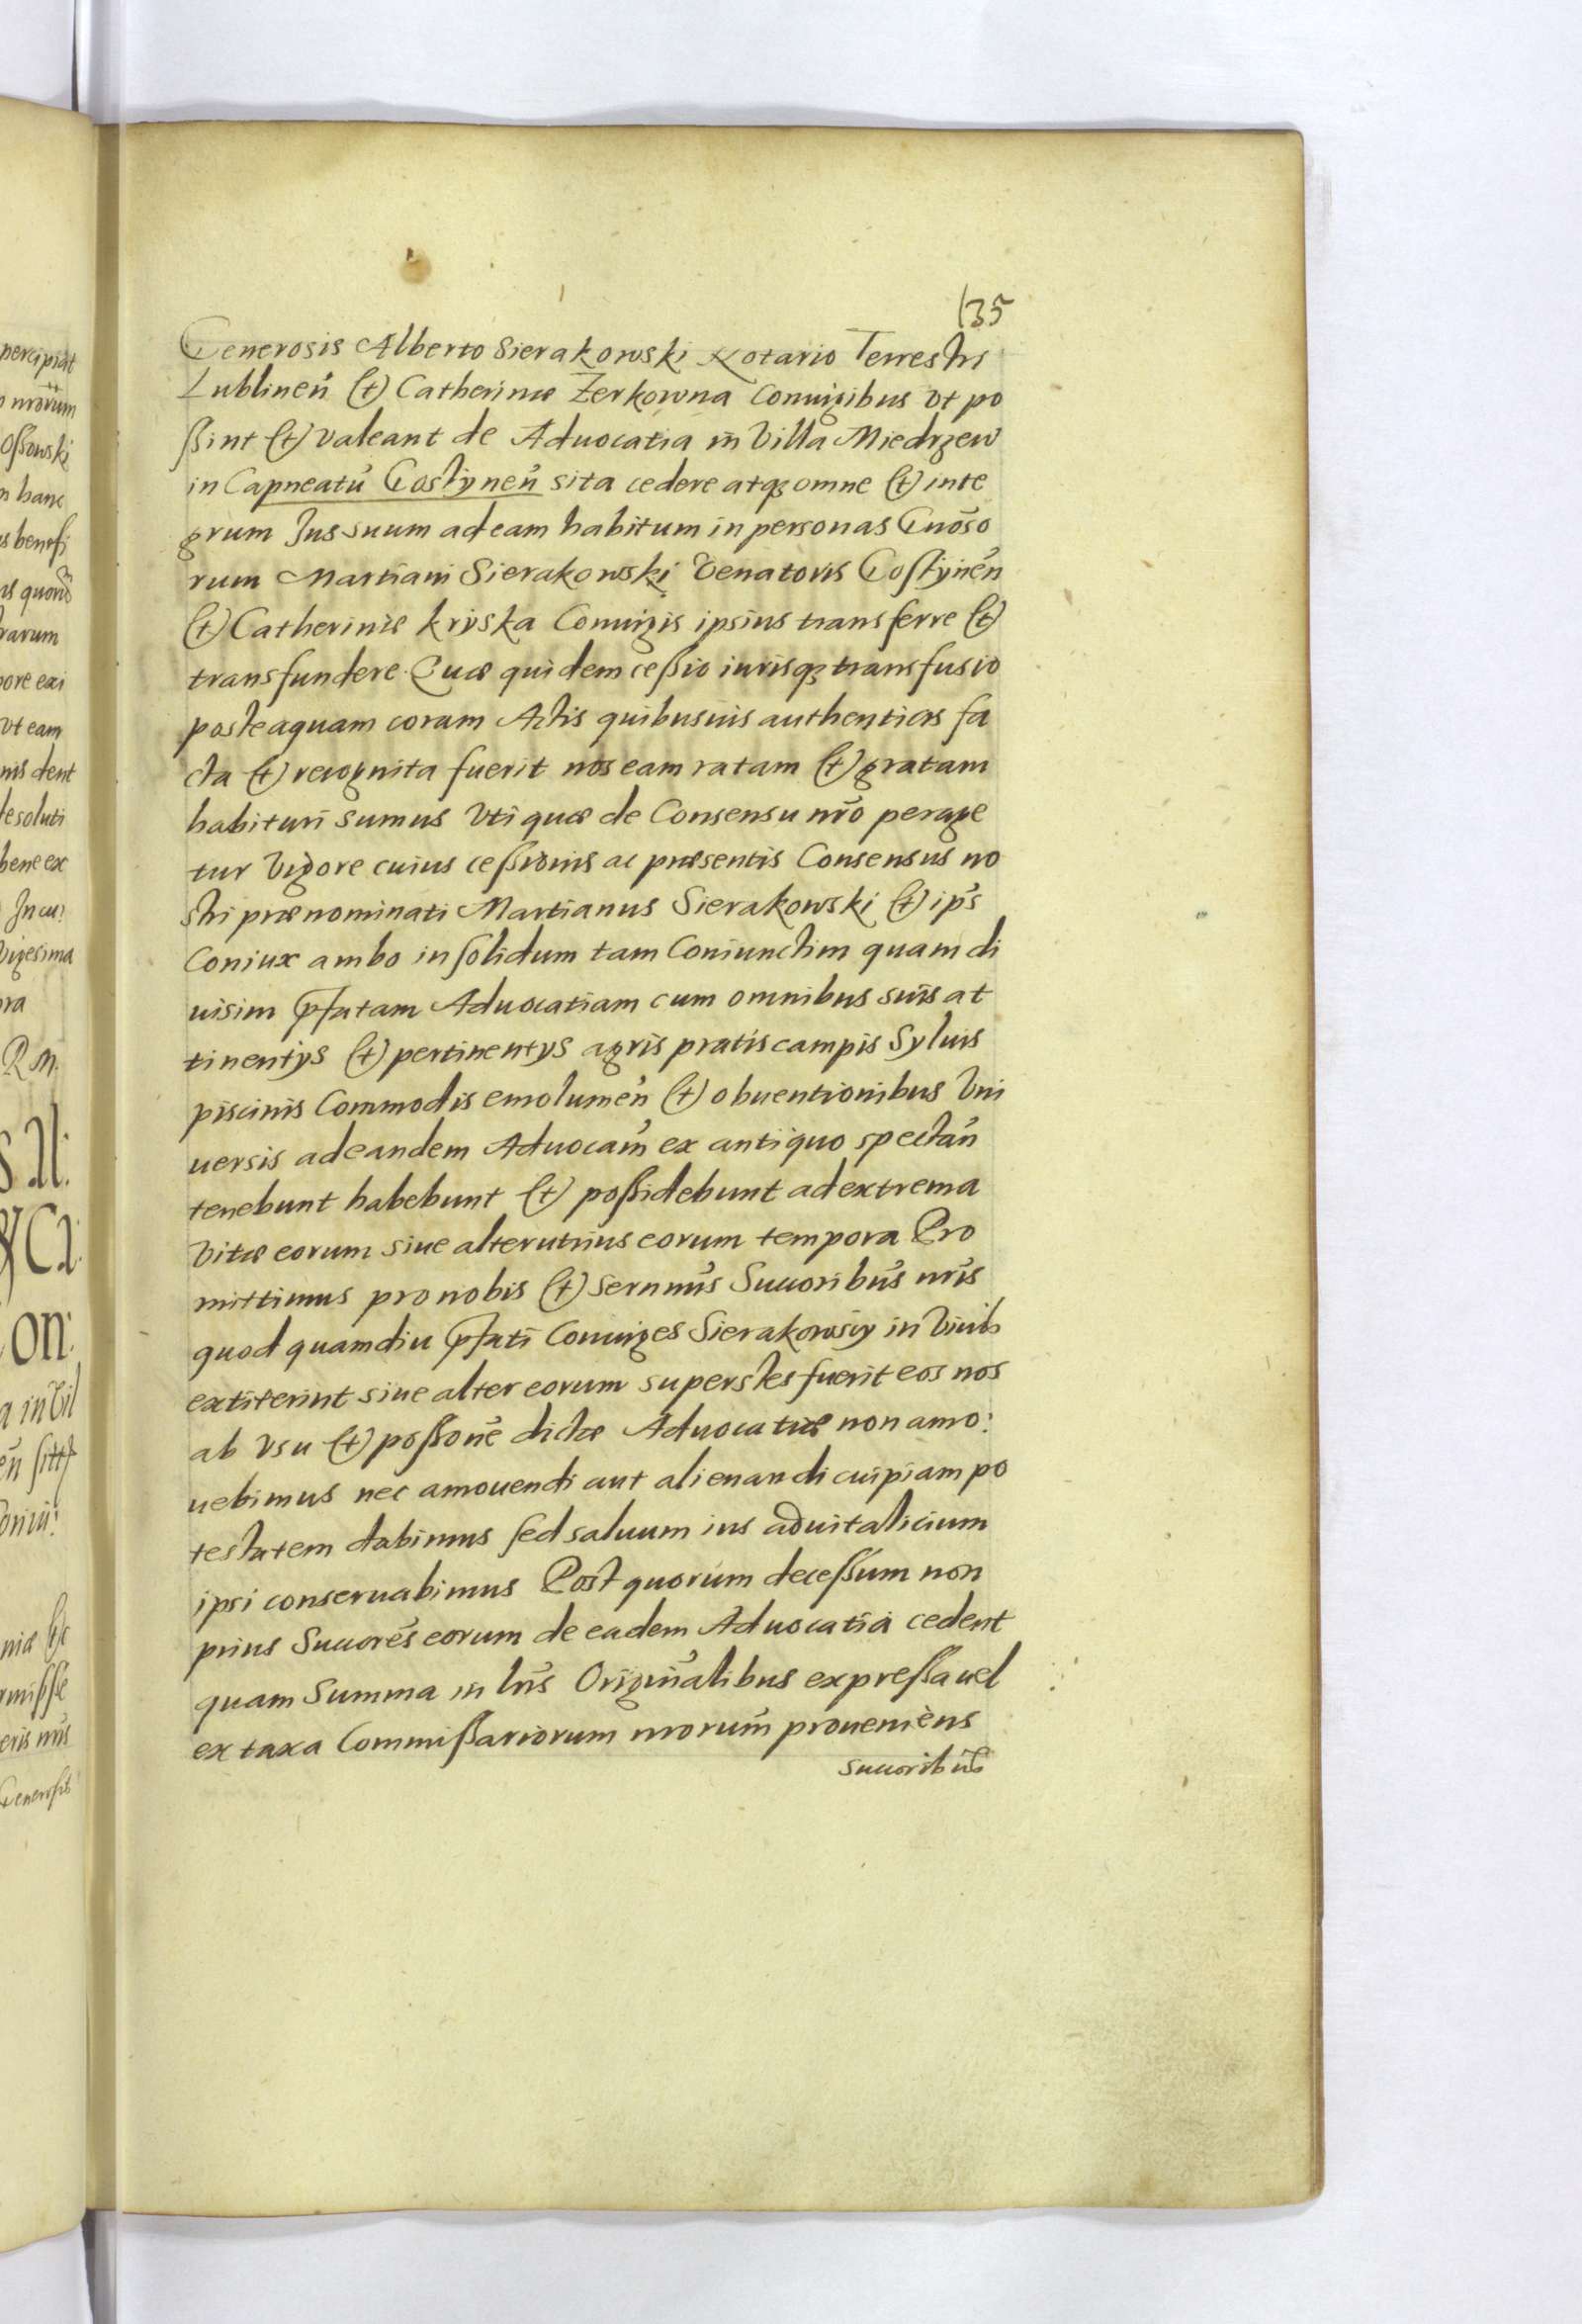 135
Generosis Alberto Sierakowski Notario Terrestri
Lublineñ et Catherinæ Zerkowna Coniugibus vt po
ssint et valeant de Aduocatia in Villa Miedrzew
in Capneatu Gostyneñ sita cedere atq3 omne et inte
grum Jus suum ad eam habitum in personas Gnoso
rum Martiani Sierakowski Venatoris Gostyneñ
et Catherinæ kryska Coniugis ipsius transferre et
transfundere Quæ quidem cessio iurisq3 transfusio
posteaquam coram Actis quibusuis authenticis fa
cta et recognita fuerit nos eam ratam et gratam
habituri sumus Vti quæ de Consensu nro perage
tur Vigore cuius cessionis ac præsentis Consensus no
stri prænominati Martianus Sierakowski et ips
Coniux ambo in solidum tam Coniunctim quam di
uisim pfatam Aduocatiam cum omnibus suis at
tinentijs et pertinentijs agris pratis campis Syluis
piscinis Commodis emolumeñ et obuentionibus Vni
uersis ad eandem Aduocam ex antiquo spectañ
tenebunt habebunt et possidebunt ad extrema
Vitæ eorum siue alterutrius eorum tempora Pro
mittimus pro nobis et Sernmis Succoribus nris
quod quamdiu pfati Coniuges Sierakowscy in Viuis
extiterint siue alter eorum superstes fuerit eos nos
ab Vsu et possone dictæ Aduocatiæ non amo:
uebimus nec amouendi aut alienandi cuipiam po
testatem dabimus sed saluum ius aduitalicium
ipsi conseruabimus Post quorum decessum non
prius Succores eorum de eadem Aduocatia cedent
quam Summa in lris Originalibus expressa uel
ex taxa Commissariorum nrorum proueniens
succoribus
percipiat
nrorum
Ossowski
hanc
benefi
quorū
rarum
ore exi
vt eam
nis dent
soluti
bene ex
Jn cu:
Vigesima
R M.
on:
a in Vil
eris nris
Generosis